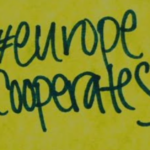 #europe
Cooperates